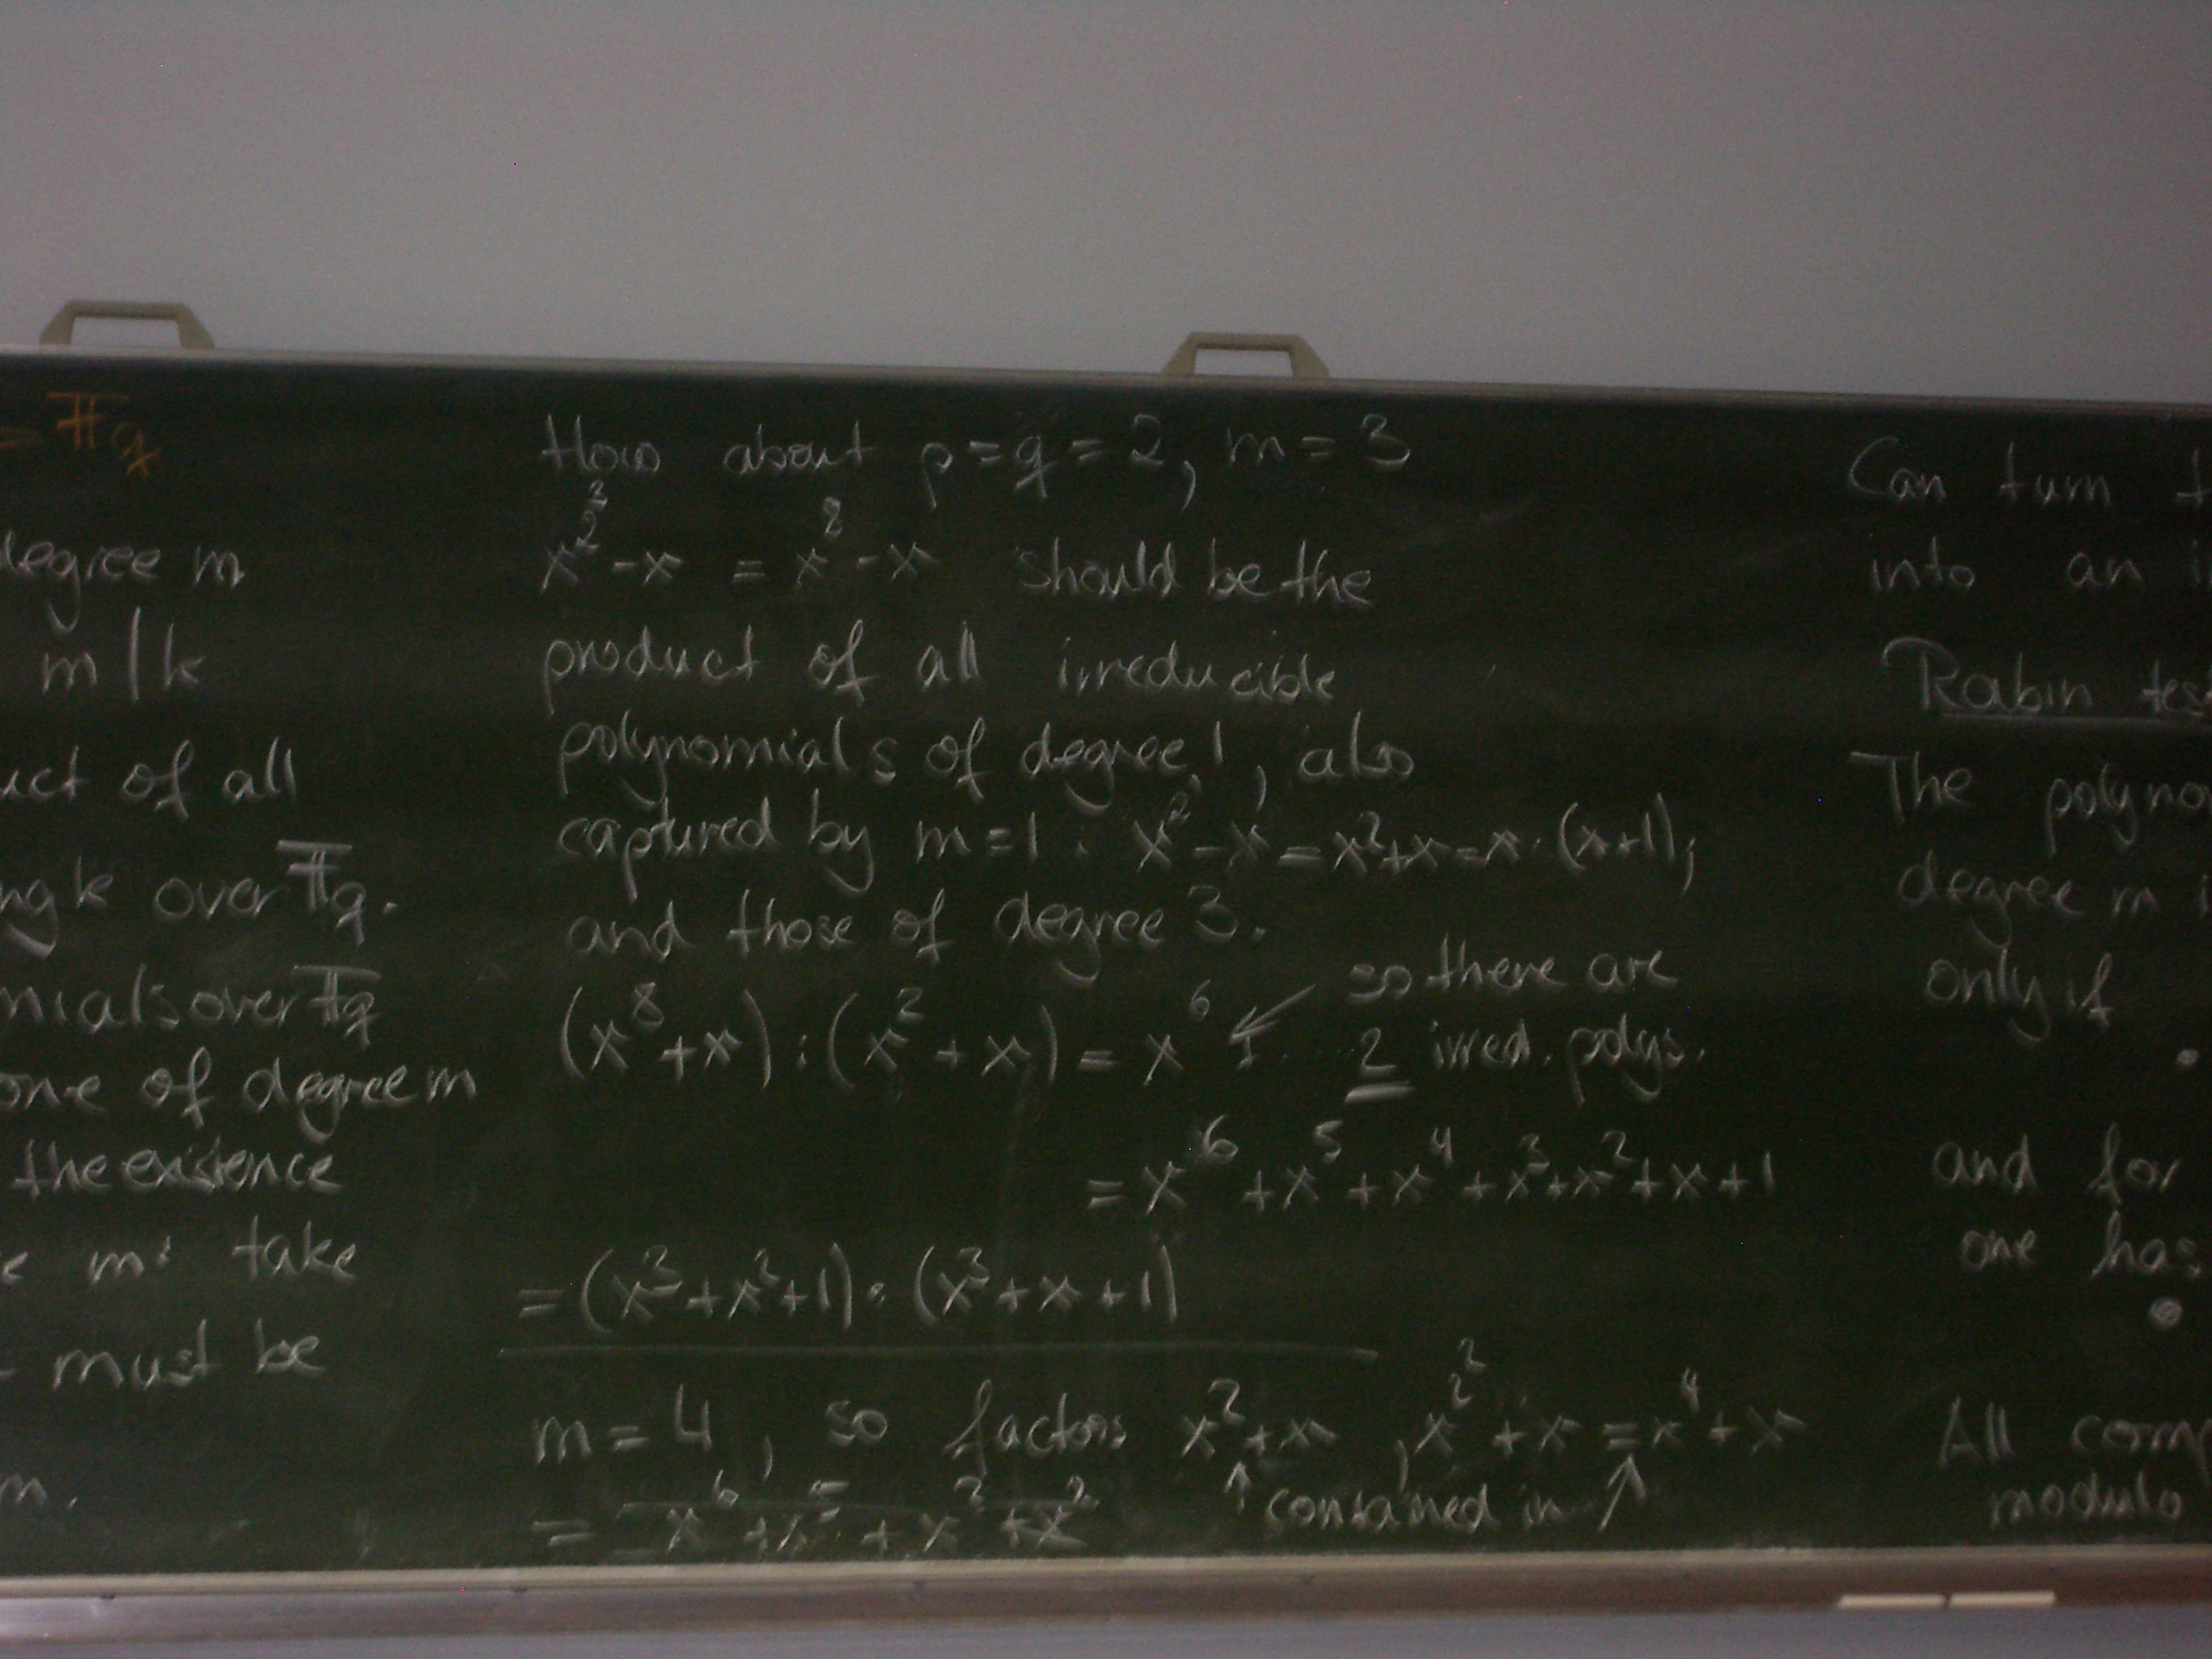 = 𝔽_qx
degree m
m | k
uct of all
ng k over 𝔽_q.
nials over 𝔽_q
one of degree m
the existence
e m: take
must be
m.
How about p = q = 2, m = 3
x^{2^3} - x = x^8 - x should be the
product of all irreducible
polynomials of degree 1, also
captured by m = 1 : x^2 - x = x^2 + x = x · (x+1);
and those of degree 3.
(x^8 + x) : (x^2 + x) = x^6 + ... ← so there are
2 irred. polys.
= x^6 + x^5 + x^4 + x^3 + x^2 + x + 1
= (x^3 + x^2 + 1) · (x^3 + x + 1)
m = 4, so factors x^2 + x , x^{2^2} + x = x^4 + x
↑ contained in ↑
= x^6 + x^5 + x^3 + x^2
Can turn t
into an i
Rabin tes
The polyno
degree m i
only if
•
and for
one has
•
All com
modulo